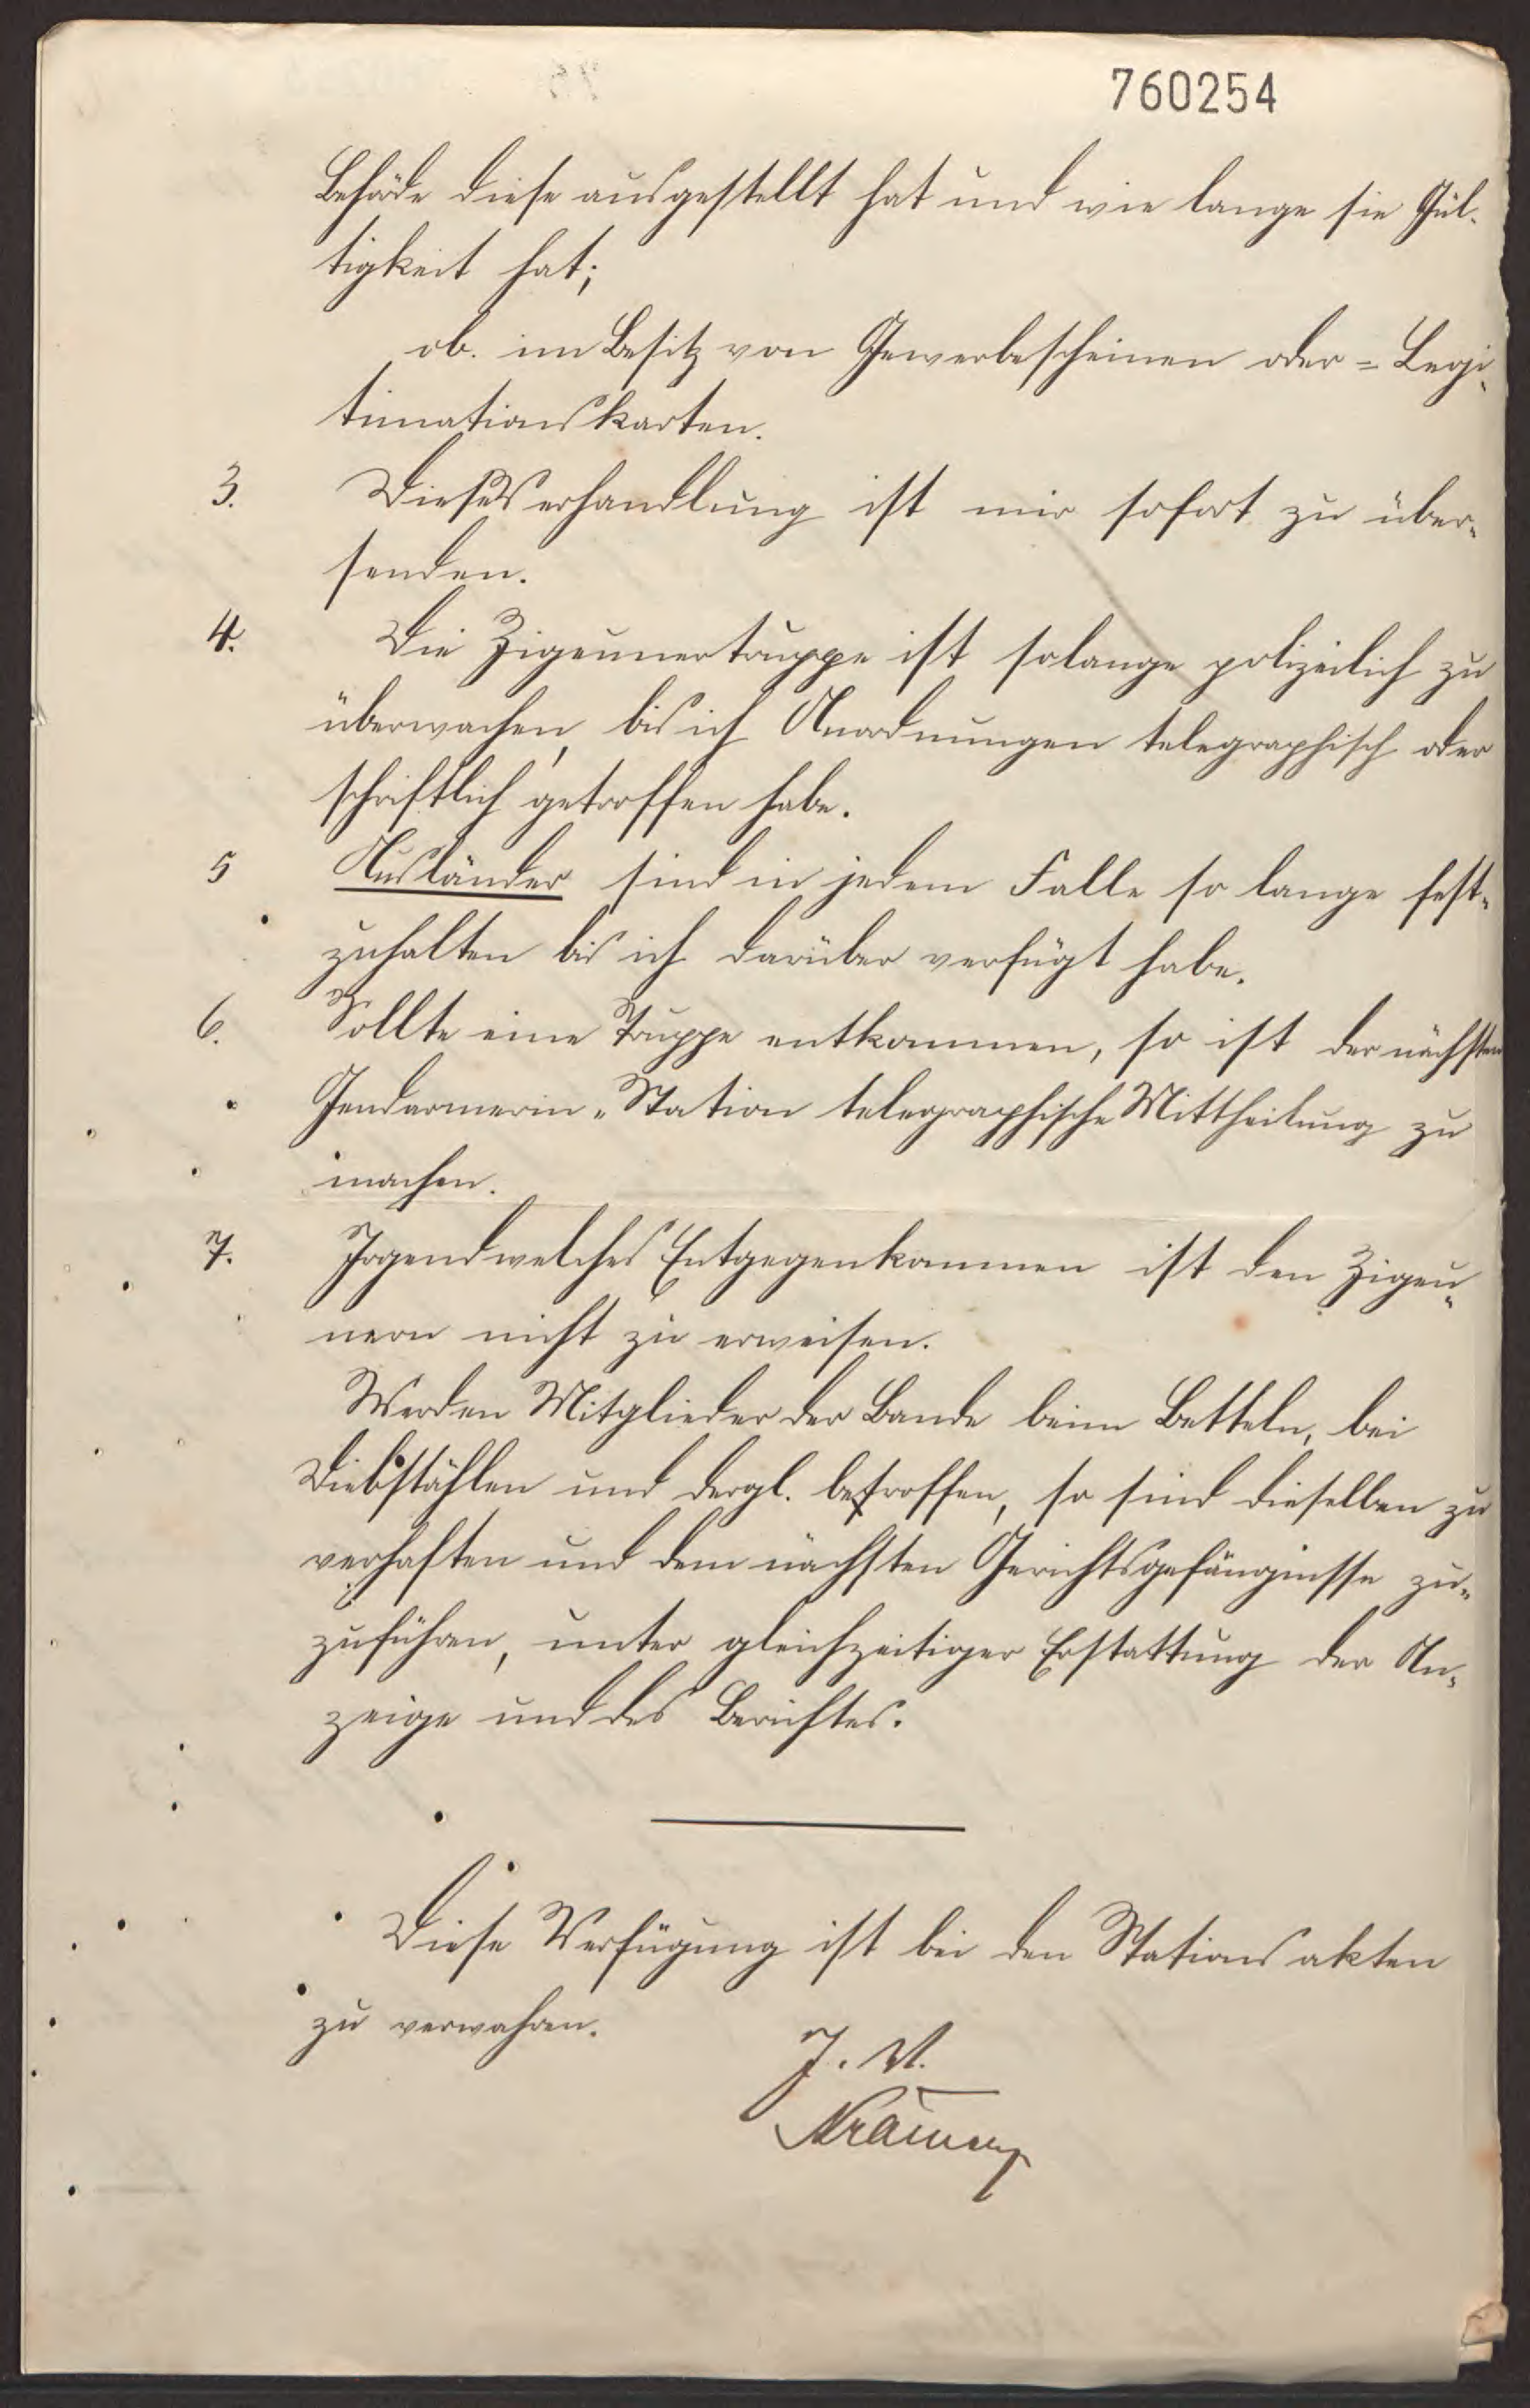 760254
Behöde diese ausgestellt hat und wie lange sie Gül-
tigkeit hat;
ob. im Besitz von Gewerbescheinen oder = Legi-
timationskarten.
3. Diese Verhandlung ist mir sofort zu über-
senden.
4. Die Zigeunertruppe ist solange polizeilich zu
überwachen, bis ich Anordnungen telegraphisch oder
schriftlich getroffen habe.
5 Ausländer sind in jedem Falle so lange fest-
zuhalten bis ich darüber verfügt habe.
6. Sollte eine Truppe entkommen, so ist der nächsten
Gendarmerie-Station telegraphische Mittheilung zu
machen.
7. Irgendwelches Entgegenkommen ist den Zigeu-
nern nicht zu erweisen.
Werden Mitglieder der Bande beim Betteln, bei
Diebstählen und dergl. betroffen, so sind dieselben zu
verhaften und dem nächsten Gerichtsgefängnisse zu-
zuführen, unter gleichzeitiger Erstattung der An-
zeige und des Berichtes.
Diese Verfügung ist bei den Stationsakten
zu verwahren.
J. V.